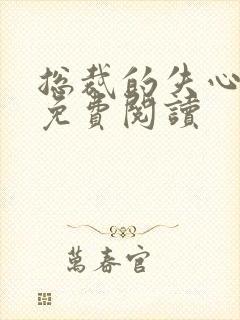 总裁的失心
免費閱讀
萬春官